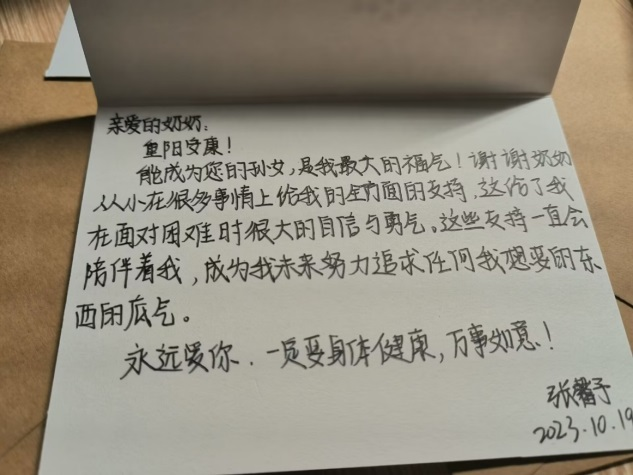 亲爱的奶奶：
重阳安康！
能成为您的孙女，是我最大的福气！谢谢奶奶
从小在很多事情上给我的全方面的支持，这给了我
在面对困难时很大的自信与勇气。这些支持一直会
陪伴着我，成为我未来努力追求任何我想要的东
西的底气。
永远爱你．一定要身体健康，万事如意！
张馨予
2023.10.19